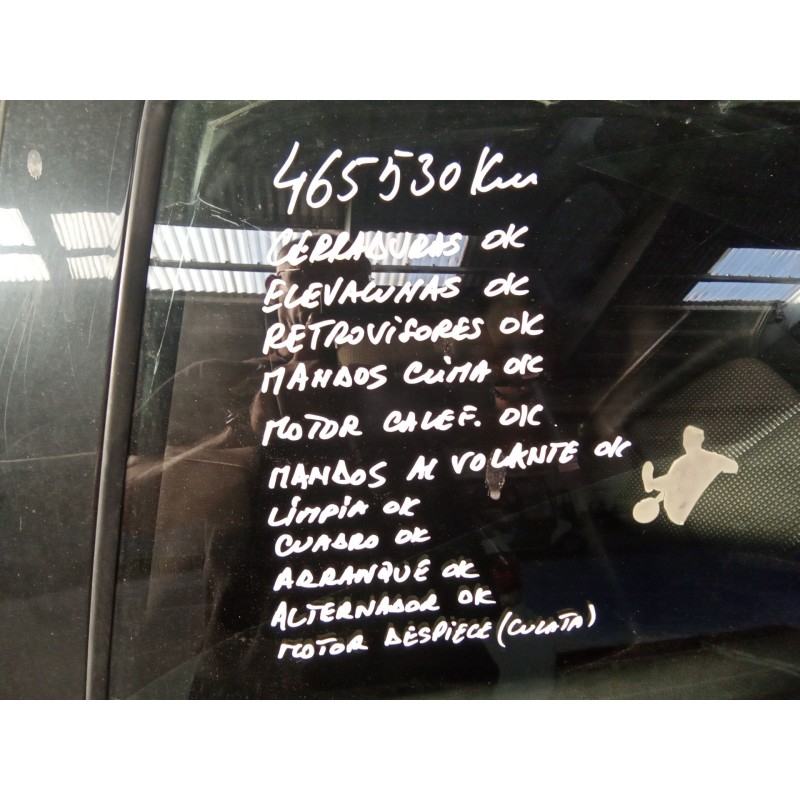 465530 Km
CERRADURAS OK
ELEVALUNAS OK
RETROVISORES OK
MANDOS CLIMA OK
MOTOR CALEF. OK
MANDOS AL VOLANTE OK
LIMPIA OK
CUADRO OK
ARRANQUE OK
ALTERNADOR OK
MOTOR DESPIECE (CULATA)